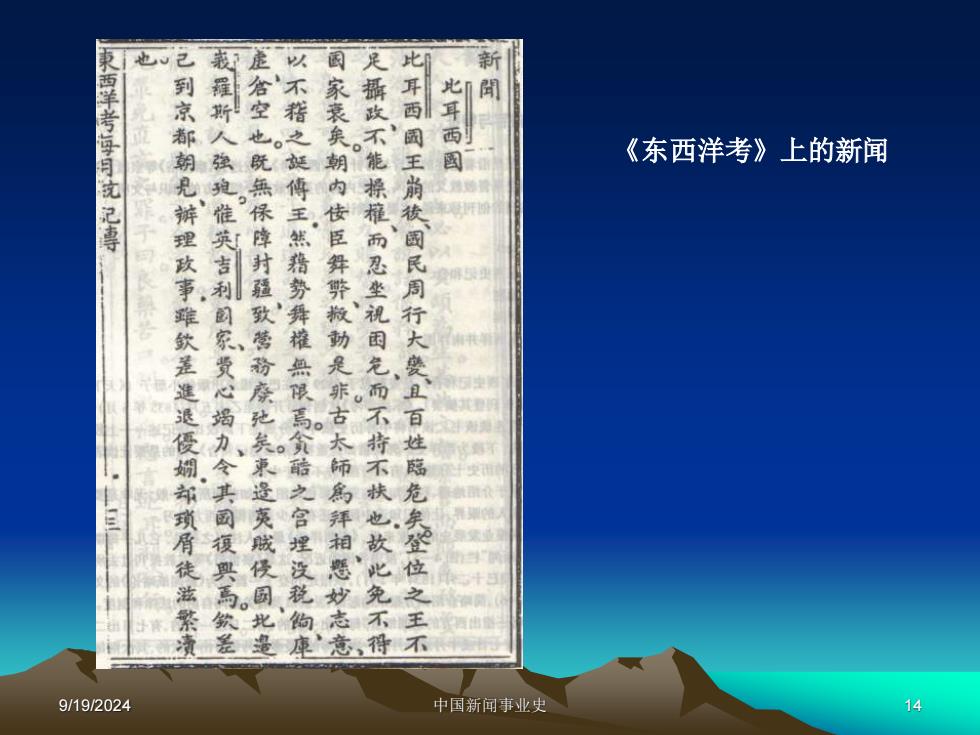 新聞
此耳西國
此耳西國王崩後、國民周行大變、且百姓臨危矣。登位之王不
足攝政、不能操權、而忍坐視困危、而不持不扶也。故此免不得
國家衰矣。朝內佞臣舞弊、掀動是非。古太師為拜相、懸妙志意、
以不稽之誕傳王。然藉勢舞權無限焉。貪酷之官埋没稅餉、庫
虛倉空也。既無保障封疆、致營務廢弛矣。東邉夷賊侵國、北邉
峩羅斯人強廹。惟英吉利國家、費心竭力、令其國復興焉。欽差
己到京都朝見、辦理政事。雖欽差進退優嫻、却瑣屑徒滋繁瀆
也。
東西洋考每月统记傳
十三
《东西洋考》上的新闻
9/19/2024
中国新闻事业史
14